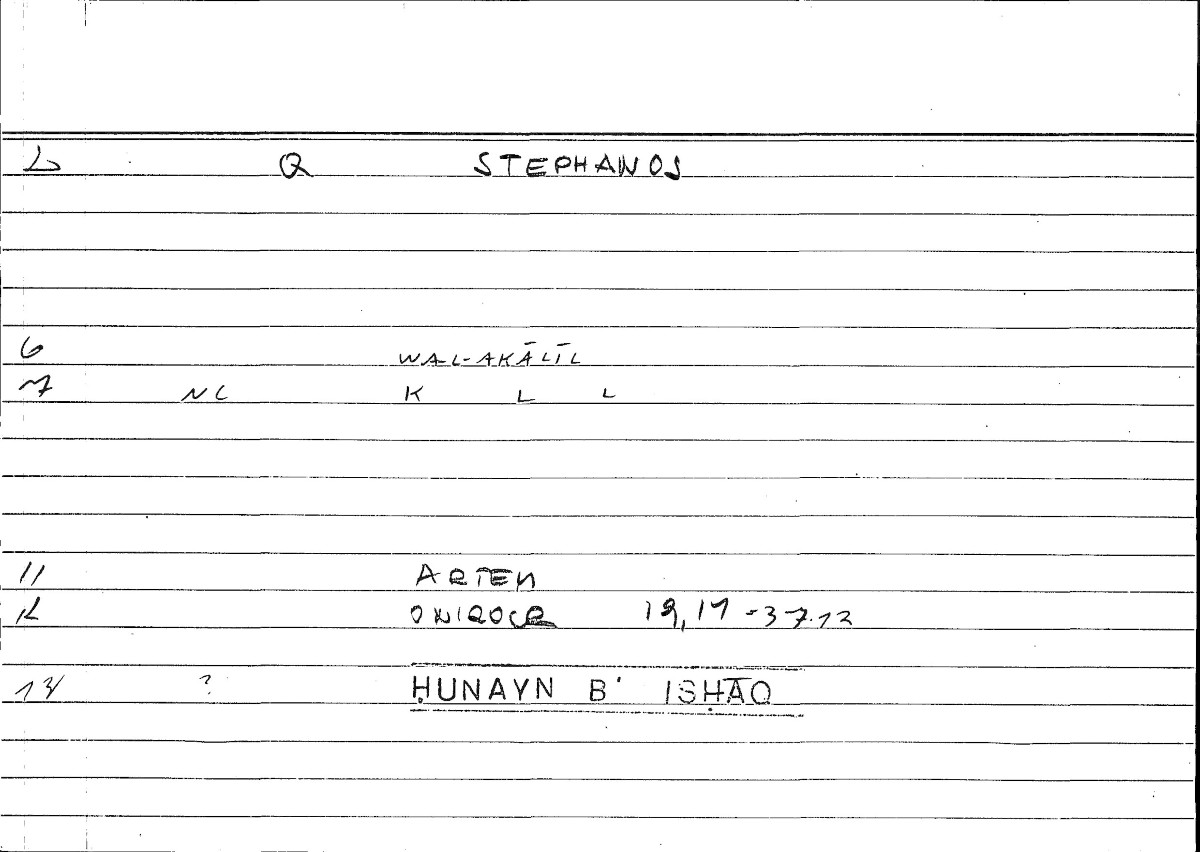 Q STEPHANOS
6 WAL-AKĀLĪL
7 NC K L L
11 ARTEM
ONIROCR 19,17-37.12
13 ? ḤUNAYN B' ISḤĀQ